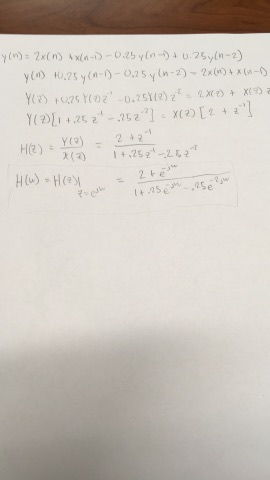 y(n) = 2x(n) + x(n-1) - 0.25 y(n-1) + 0.25 y(n-2)
y(n) + 0.25 y(n-1) - 0.25 y(n-2) = 2x(n) + x(n-1)
Y(z) + 0.25 Y(z) z^-1 - 0.25 Y(z) z^-2 = 2X(z) + X(z) z
Y(z) [1 + .25 z^-1 - .25 z^-2] = X(z) [2 + z^-1]
H(z) = Y(z)/X(z) = (2 + z^-1)/(1 + .25 z^-1 - .25 z^-2)
H(ω) = H(z)|z=e^jω = (2 + e^-jω)/(1 + .25 e^-jω - .25 e^-2jω)